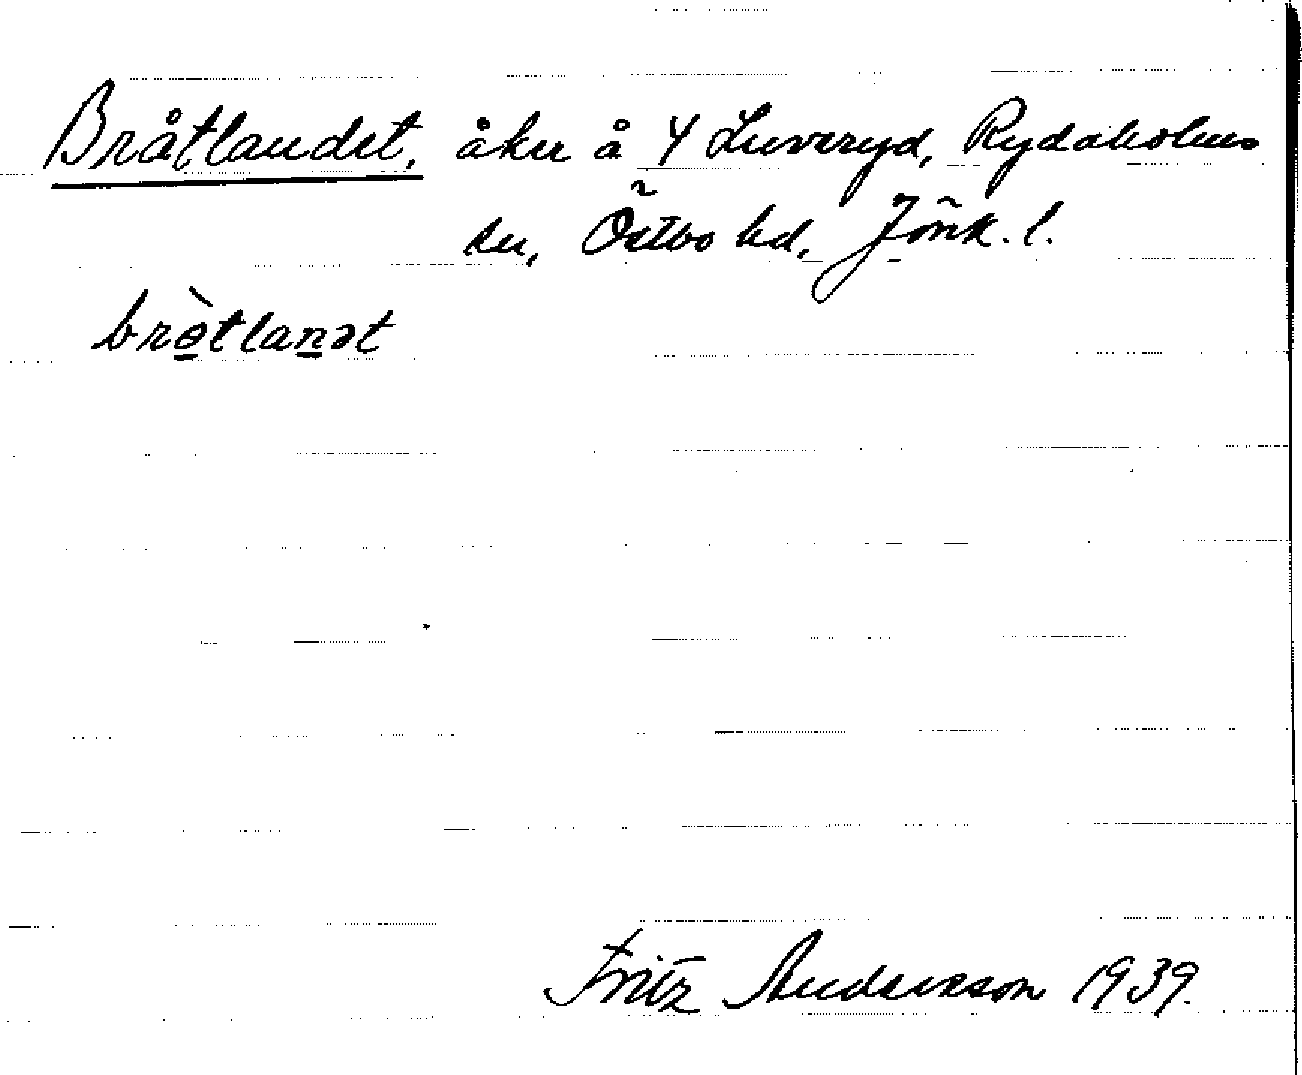 Bråtlandet, åker å Y Luveryd, Rydaholms
sn, Östbo hd, Jönk. l.
bròtlanət
Fritz Andersson 1939.